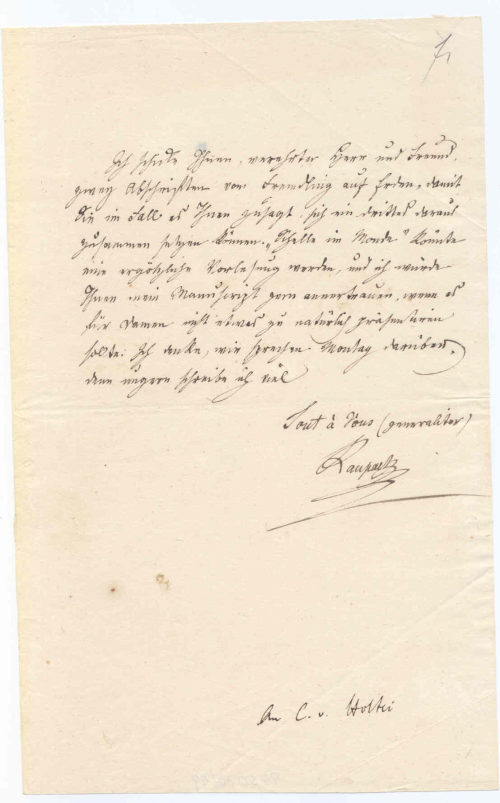 Ich schicke Ihnen, verehrter Herr und Freund,
zwey Abschriften vom Fremdling auf Erden, damit
Sie im Fall es Ihnen zusagt sich ein drittes daraus
zusammen setzen können. „Schelle im Monde“ könnte
eine ergötzliche Vorlesung werden, und ich würde
Ihnen mein Manuscript gern anvertrauen, wenn es
für Damen nicht etwas zu natürlich präsentiren
sollte. Ich denke, wir sprechen Montag darüber,
denn ungern schreibe ich viel
Tout à Vous (generaliter)
Raupach
An C. v. Holtei